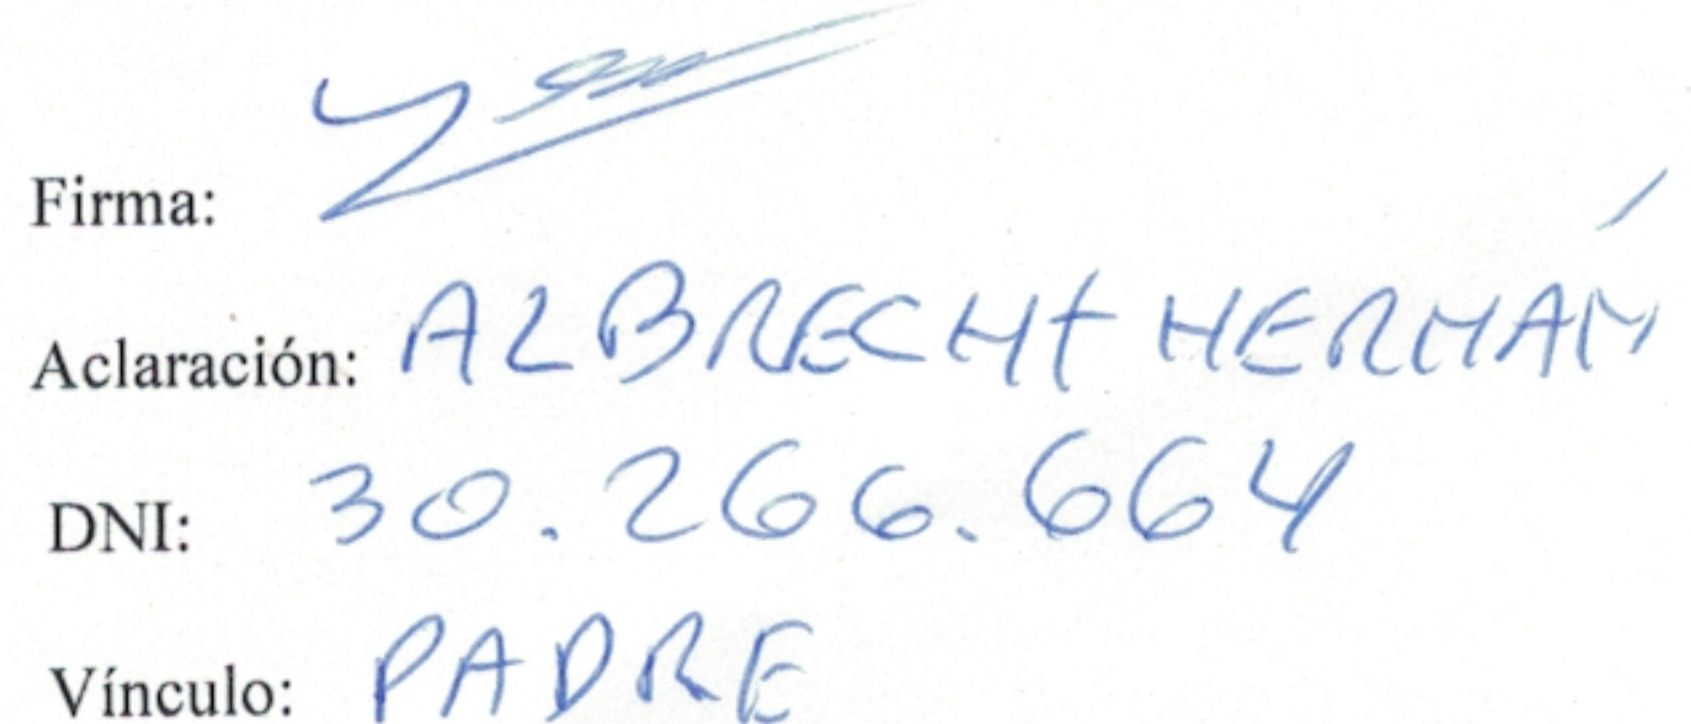 Firma:
Aclaración: ALBRECHT HERNÁN
DNI: 30.266.664
Vínculo: PADRE